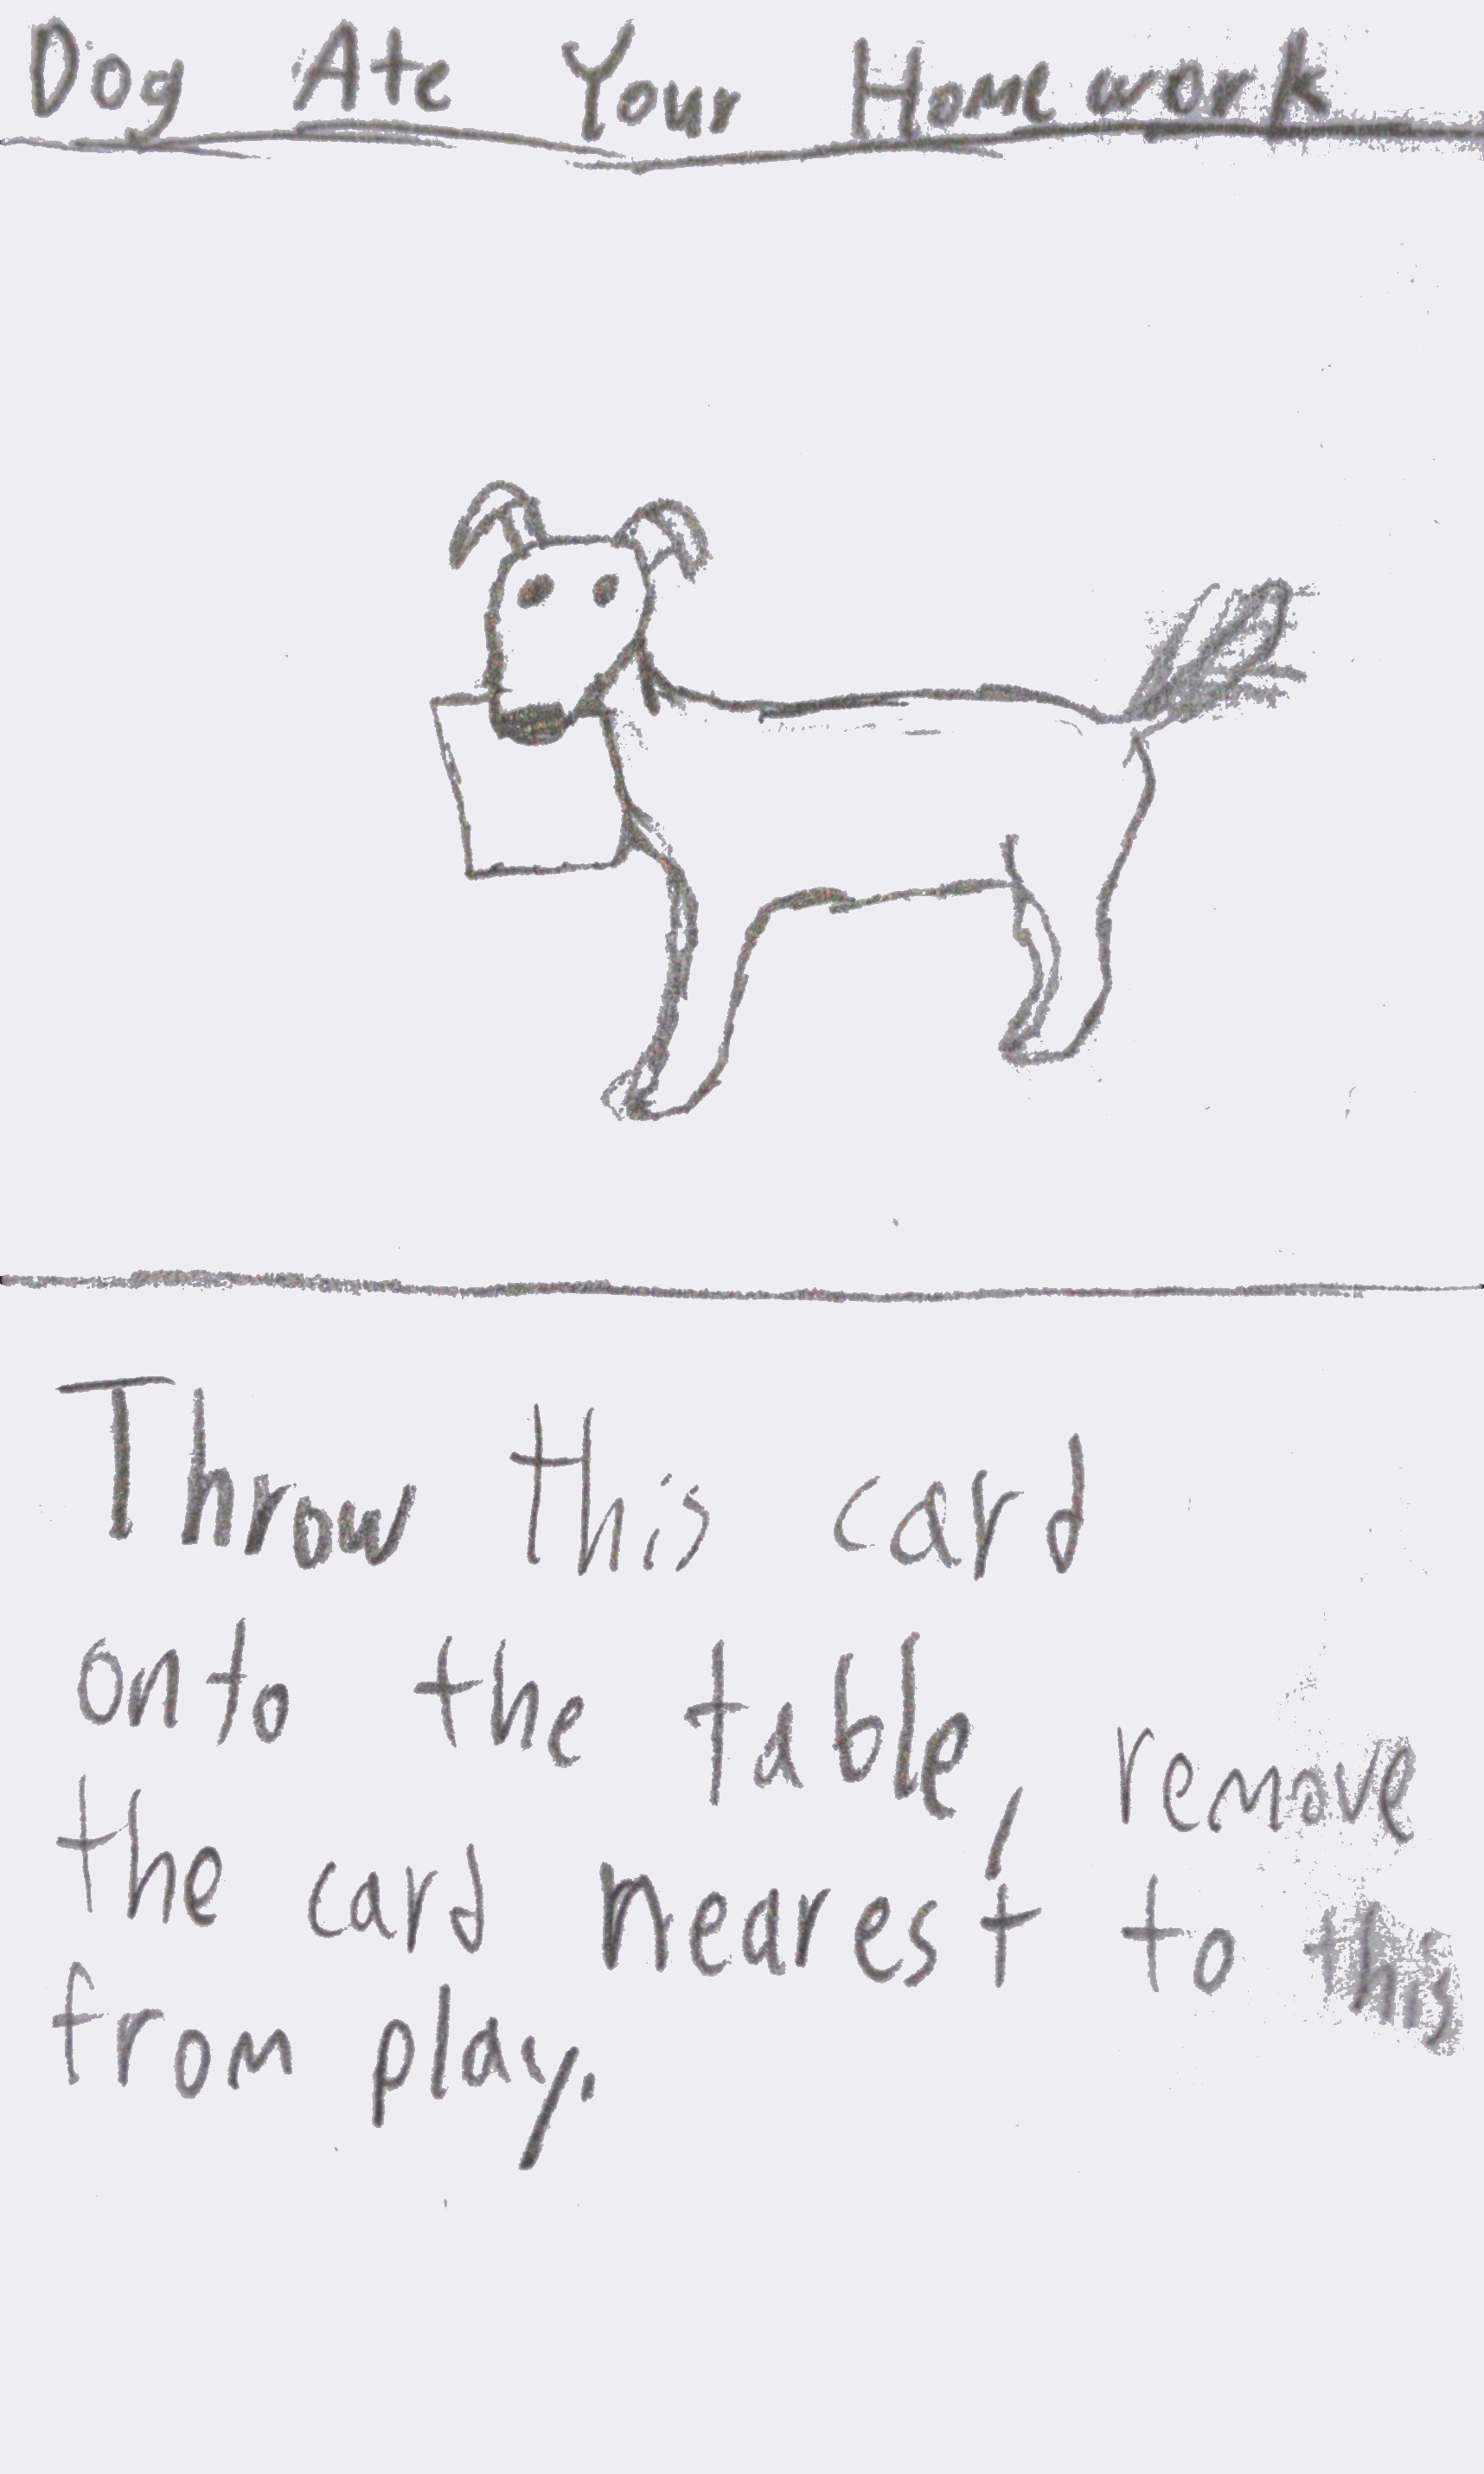 Dog Ate Your Homework
Throw this card
onto the table, remove
the card nearest to this
from play.